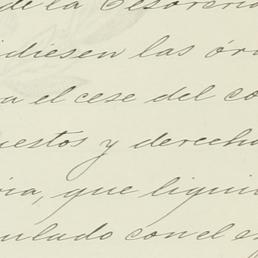 de la Tesorería
idiesen las ór
a el cese del co
uestos y derecho
ria, que liqui
ulado con el e